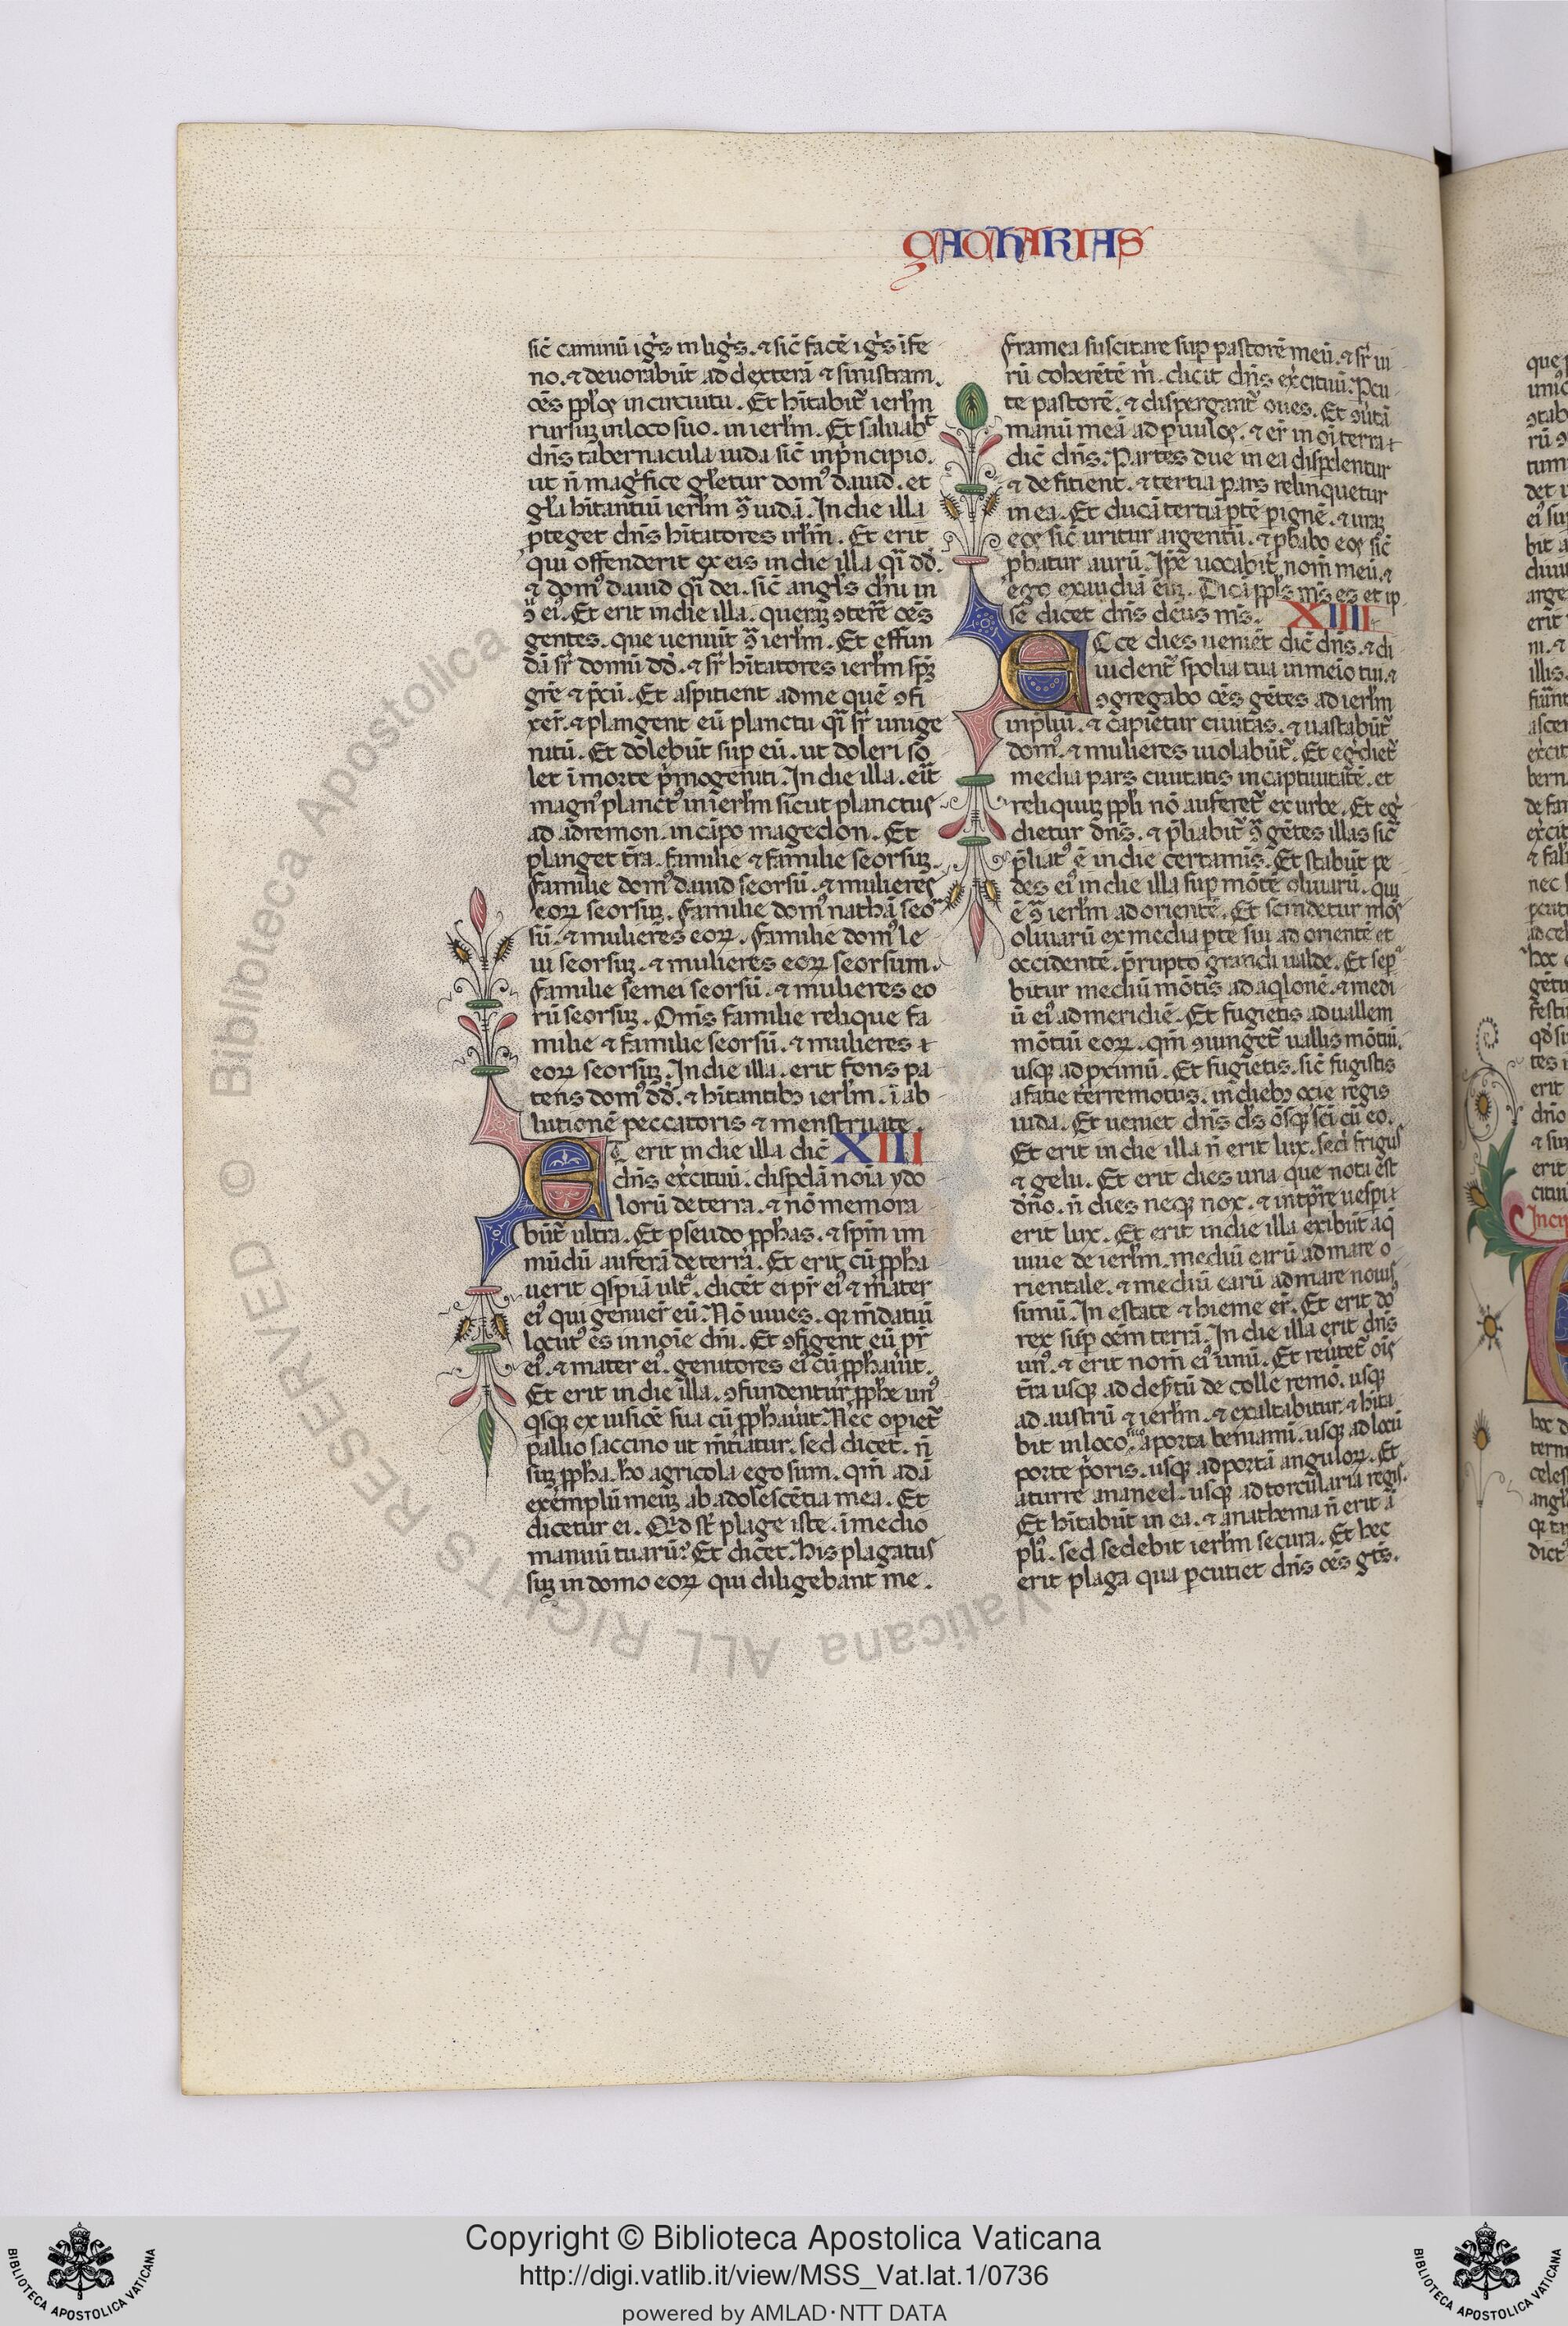 ÇACHARIAS
sic̄ caminū ig̕s in lig̕s. ⁊ sic̄ facē ig̕s ī fe
no. ⁊ deuorabūt ad dexterā ⁊ sinistram.
oēs ppl̕os in circuitu. Et hītabit̄ ierl̕m
rursuʒ in loco suo. in ierl̕m. Et saluabᵗ
dn̄s tabernacula iuda sic̄ in pͥncipio.
ut n̄ magͥfice gl̕etur domꝰ dauid. et
gl̕a hītantiū ierl̕m ꝯᵃ iudā. In die illa
ꝓteget dn̄s hītatores irl̕m. Et erit
qui offenderit ex eis in die illa qͣi dd̄.
⁊ domꝰ dauid qͣi dei. sic̄ angl̕s dn̄i in
ꝯᵃ eiꝰ. Et erit in die illa. queraʒ ꝯterē oēs
gentes. que ueniūt ꝯᵃ ierl̕m. Et effun
dā sr̄ domū dd̄. ⁊ sr̄ hītatores ierl̕m spʒ
grē ⁊ pc̄ū. Et aspitient ad me quē ꝯfi
xer̄. ⁊ plangent eū planctu qͣi sr̄ unige
nitū. Et dolebūt suꝑ eū. ut doleri so
let ī morte pͥmogeniti. In die illa. erit
magnꝰ planctꝰ in ierl̕m sicut planctus
ad adremon in cāpo magedon. Et
planget tr̄a. familie ⁊ familie seorsuʒ.
familie domꝰ dauid seorsū. ⁊ mulieres
eoꝝ seorsuʒ. familie domꝰ nathā seoʳ
sū. ⁊ mulieres eoꝝ. familie domꝰ le
ui seorsuʒ. ⁊ mulieres eoꝝ seorsum.
familie semei seorsū. ⁊ mulieres eo
rū seorsuʒ. Om̄s familie relique fa
milie ⁊ familie seorsū. ⁊ mulieres
eoꝝ seorsuʒ. In die illa. erit fons pa
tens domꝰ dd̄. ⁊ hītantibꝫ ierl̕m. ī ab
lutionē peccatoris ⁊ menstruate.
Et erit in die illa dic̄ XIII
dn̄s ex̕cituū. disꝑdā noīa ydo
lorū de terra. ⁊ nō memora
būt̄ ultra. Et pseudo ꝓphas. ⁊ spm̄ im
mūdū auferā de terra. Et erit cū ꝓpha
uerit qͥspiā ultͣ. dicēt ei pr̄ eiꝰ ⁊ mater
eiꝰ qui genuer̄ eū. Nō uiues. qꝛ mēdatiū
locutꝰ es in noīe dn̄i. Et ꝯfigent eū pr̄
eiꝰ. ⁊ mater eiꝰ. genitores eiꝰ cū ꝓphau̕it.
Et erit in die illa. ꝯfundentur ꝓphe unꝰ
qͥsqꝫ ex uisiōe sua cū ꝓphau̕it. Nec opiet̄
pallio saccino ut mētiatur. sed dicet. n̄
suʒ ꝓpha. hō agricola ego sum. qm̄ adā
exemplū meuʒ ab adolescētia mea. Et
dicetur ei. Qͥd st̄ plage iste. ī medio
manuū tuarū? Et dicet. his plagatus
suʒ in domo eoꝝ qui diligebant me.
framea suscitare suꝑ pastorē meū. ⁊ sr̄ ui
rū coherētē m̄. dicit dn̄s ex̕cituū. Ꝑcu
te pastorē. ⁊ dispergant̄ oues. Et ꝯu̕tā
manū meā ad ꝑuulos. ⁊ er̄ in oī terra
dic̄ dn̄s. Partes due in ea disꝑdentur
⁊ defitient. ⁊ tertia pars relinquetur
in ea. Et ducā tertiā ꝑtē ꝑ ignē. ⁊ uraʒ
eos sic̄ uritur argentū. ⁊ ꝓbabo eos sic̄
ꝓbatur aurū. Ip̄e uocabit nom̄ meū. ⁊
ego exaudiā eūʒ. Dicā ppl̕s ms̄ es et ip
se dicet dn̄s deus ms̄. XIIII
Ecce dies ueniēt dic̄ dn̄s. ⁊ di
uident̄ spolia tua in meio tui. ⁊
ꝯgregabo oēs gētes ad ierl̕m
in p̄liū. ⁊ capietur ciuitas. ⁊ uastabūt̄
domꝰ. ⁊ mulieres uiolabūt̄. Et eg̕diet̄
media pars ciuitatis in captiuitatē. et
reliquiuʒ ppl̕i nō auferet̄ ex urbe. Et eg̕
dietur dn̄s. ⁊ p̄liabit̄ ꝯᵃ gētes illas sic̄
p̄liatꝰ ē in die certamis̄. Et stabūt pe
des eiꝰ in die illa suꝑ mōtē oliuarū. qui
ē ꝯᵃ ierl̕m ad oriētē. Et scindetur mōs
oliuarū ex media ꝑte sui ad oriētē et
occidentē. p̄rupto grandi ualde. Et seꝑᵃ
bitur mediū mōtis ad aqͥlonē. ⁊ medi
ū eiꝰ ad meridiē. Et fugietis ad uallem
mōtiū eoꝝ. qm̄ ꝯiunget̄ uallis mōtiū.
usqꝫ ad ꝓximū. Et fugietis. sic̄ fugistis
a fatie terremotus. in diebꝫ oçie regis
iuda. Et ueniet dn̄s ds̄ ōsqꝫ scī cū eo.
Et erit in die illa n̄ erit lux. sed frigus
⁊ gelu. Et erit dies una que nota est
dn̄o. n̄ dies neqꝫ nox. ⁊ in tp̄re uesꝑi
erit lux. Et erit in die illa exibūt aq̄
uiue de ierl̕m. mediū earū ad mare o
rientale. ⁊ mediū earū ad mare nouis
simū. In estate ⁊ hieme er̄. Et erit dn̄s
rex suꝑ oēm terrā. In die illa erit dn̄s
unꝰ. ⁊ erit nom̄ eiꝰ unū. Et reu̕tet̄ oīs
tr̄a usqꝫ ad desertū de colle remō. usqꝫ
ad austrū ⁊ ierl̕m. ⁊ exaltabitur. ⁊ hīta
bit in loco suo a porta beniami. usqꝫ ad locū
porte pͥoris. usqꝫ ad portā anguloꝝ. Et
a turre ananeel. usqꝫ ad torcularia regis.
Et hītabūt in ea. ⁊ anathema n̄ erit ā
pliꝰ. sed sedebit ierl̕m secura. Et hec
erit plaga qua ꝑcutiet dn̄s oēs gt̄s.
Copyright © Biblioteca Apostolica Vaticana
http://digi.vatlib.it/view/MSS_Vat.lat.1/0736
powered by AMLAD·NTT DATA
BIBLIOTECA APOSTOLICA VATICANA
BIBLIOTECA APOSTOLICA VATICANA
© Biblioteca Apostolica Vaticana ALL RIGHTS RESERVED